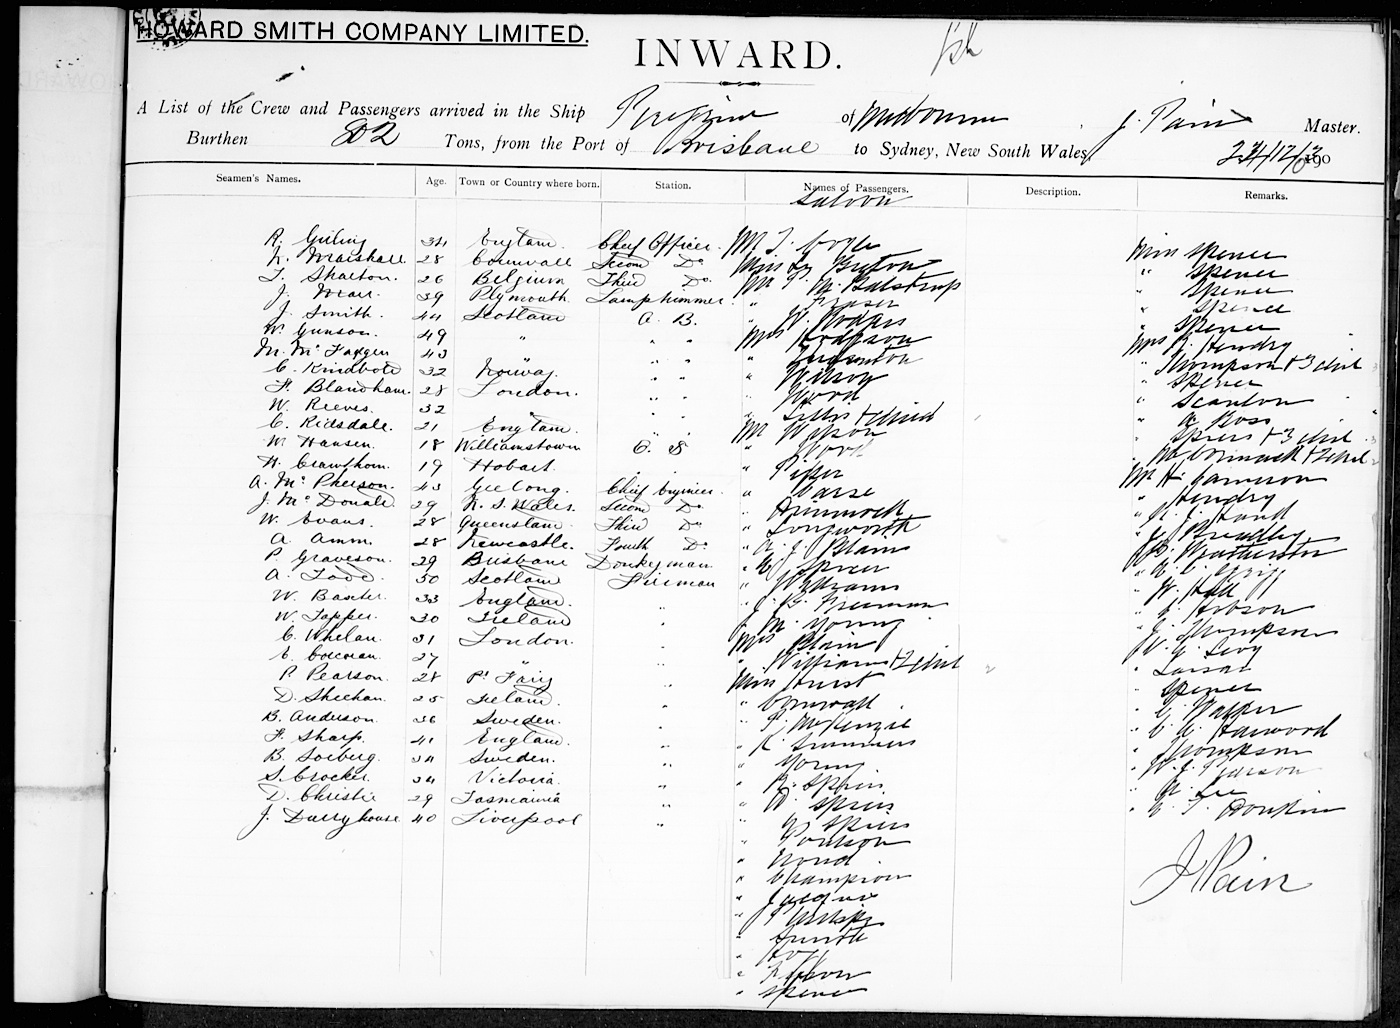 HOWARD SMITH COMPANY LIMITED.
INWARD.
A List of the Crew and Passengers arrived in the Ship Peregrine of Melbourne J. Pain Master.
Burthen 802 Tons, from the Port of Brisbane to Sydney, New South Wales, 24/12/
Seamen's Names. Age. Town or Country where born. Station. Names of Passengers. Description. Remarks.
Saloon
R. Girling 34 England. Chief Officer.
N. Marshall 28 Cornwall Second Do
T. Skelton. 26 Belgium Third Do
J. Marr. 39 Plymouth Lamptrimmer
J. Smith. 44 Scotland A. B.
W. Gunson. 49 " " "
M. McFadgen 43 " "
C. Kindbote 32 Norway. " "
H. Blandham. 28 London. " "
W. Reeves. 32
C. Ridsdale. 21 England " "
M Hansen. 18 Williamstown O. S
H. Crawthorn. 19 Hobart.
A. McPherson. 43 Geelong. Chief Engineer.
J. McDonald 29 N. S. Wales. Second Do
W. Evans. 28 Queensland Third Do
A. Amm. 28 Newcastle. Fourth Do
P. Graveson. 29 Brisbane Donkeyman
A. Todd. 50 Scotland Fireman
W. Baxter. 33 England. "
W. Topper. 30 Ireland "
C. Whelan. 31 London. "
E. Corcoran. 27 "
P. Pearson. 28 Pt Fairy "
D. Sheehan. 25 Ireland. "
B. Anderson. 36 Sweden. "
F. Sharp. 41 England. "
B. Soeberg. 34 Sweden. "
S. Crocker. 34 Victoria. "
D. Christie 29 Tasmania "
J. Durryhouse 40 Liverpool "
" Fraser
" W. Hodges
Mrs Hodgson
" Wilson
" Wood
Mr Wilson
" Wood
" Piper
" Carse
" Dimmock
" Longworth
" A. J. Blain
" Spicer
" Williams
" J. G. Freeman
" J. M. Young
Mrs Blain
" Williams + 2 child 2
Miss Hurst
" Cornwall
" P. McKenzie
" K. Simmons
" Young
" R. Spiers
" W. Spiers
" G. Spiers
" Poulson
" Wood
" Champion
" Smith
" Spence
Miss Spence
" Spence
" Spence
" Spence
" Spence
Mrs R. Hendry
" Thompson + 3 child 3
" Spence
" Scanlon
" A Ross
" Spiers + 3 child 3
" McCormack + 2 child 2
Mr H. Cameron
" Hendry
" J. Hand
" J. Bradley
" W. Hall
" C. Hobson
" J. Thompson
" W. G. Levy
" Spence
" C. Walker
" C. A. Harwood
" Thompson
" W. J. Pearson
" A. Lee
J Pain